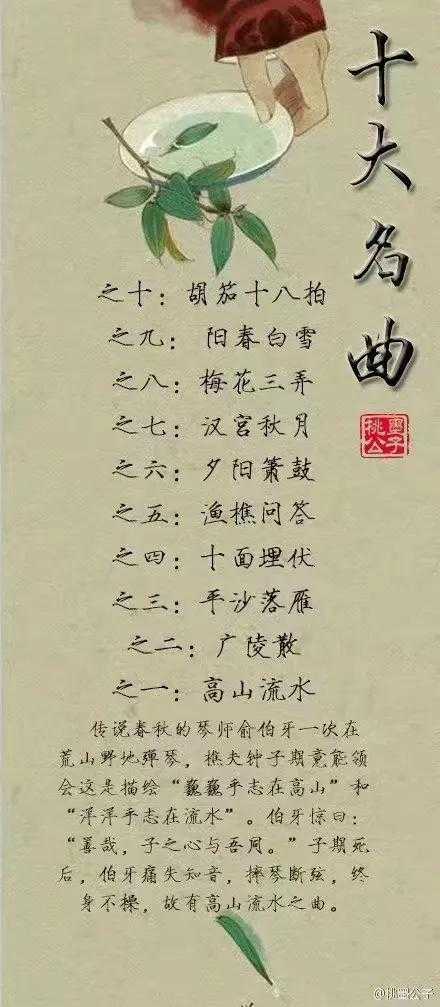 十大名曲
桃墨
公子
之十：胡笳十八拍
之九：阳春白雪
之八：梅花三弄
之七：汉宫秋月
之六：夕阳箫鼓
之五：渔樵问答
之四：十面埋伏
之三：平沙落雁
之二：广陵散
之一：高山流水
传说春秋的琴师俞伯牙一次在
荒山野地彈琴，樵夫钟子期竟能领
会这是描绘“巍巍乎志在高山”和
“洋洋乎志在流水”。伯牙惊曰：
“善哉，子之心与吾同。”子期死
后，伯牙痛失知音，摔琴断弦，终
身不操，故有高山流水之曲。
@桃墨公子